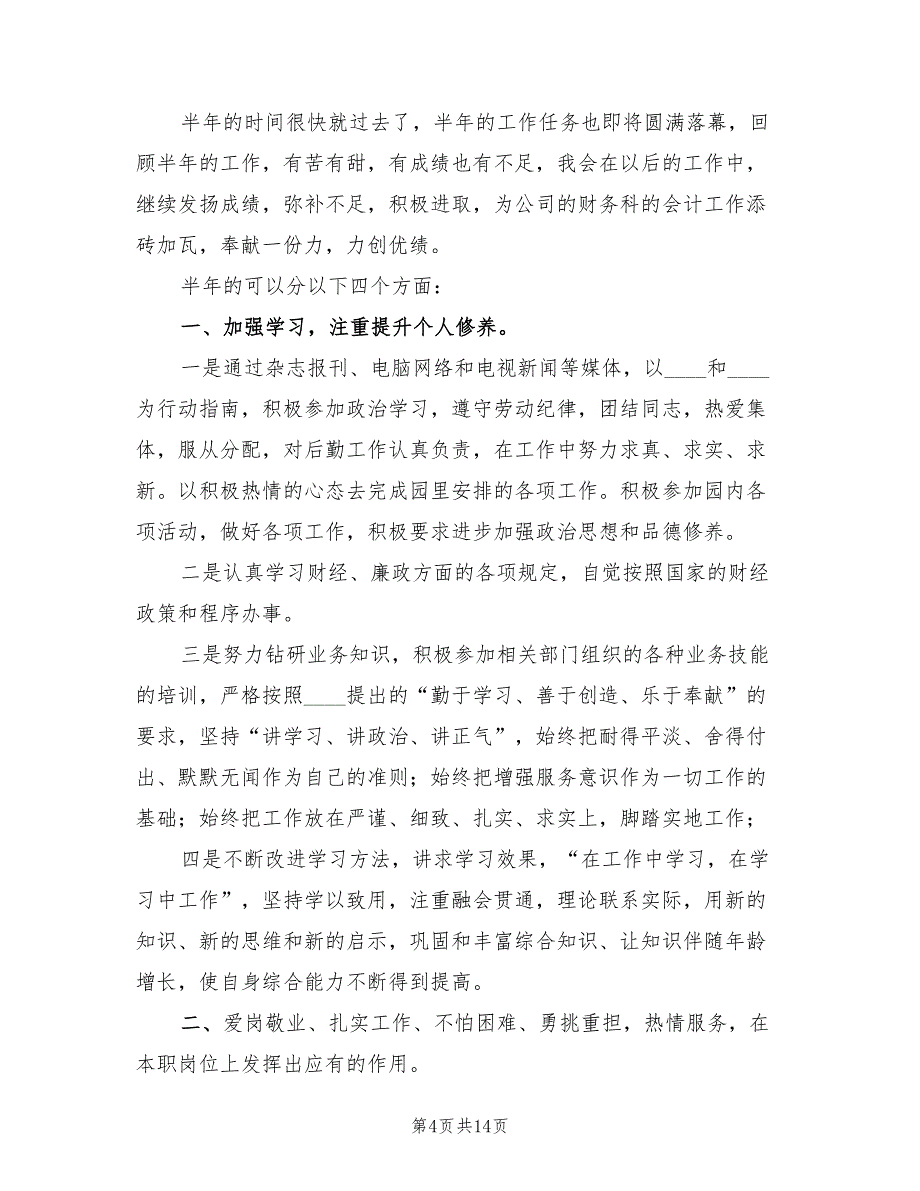 半年的时间很快就过去了，半年的工作任务也即将圆满落幕，回
顾半年的工作，有苦有甜，有成绩也有不足，我会在以后的工作中，
继续发扬成绩，弥补不足，积极进取，为公司的财务科的会计工作添
砖加瓦，奉献一份力，力创优绩。
半年的可以分以下四个方面：
一、加强学习，注重提升个人修养。
一是通过杂志报刊、电脑网络和电视新闻等媒体，以____和____
为行动指南，积极参加政治学习，遵守劳动纪律，团结同志，热爱集
体，服从分配，对后勤工作认真负责，在工作中努力求真、求实、求
新。以积极热情的心态去完成园里安排的各项工作。积极参加园内各
项活动，做好各项工作，积极要求进步加强政治思想和品德修养。
二是认真学习财经、廉政方面的各项规定，自觉按照国家的财经
政策和程序办事。
三是努力钻研业务知识，积极参加相关部门组织的各种业务技能
的培训，严格按照____提出的“勤于学习、善于创造、乐于奉献”的
要求，坚持“讲学习、讲政治、讲正气”，始终把耐得平淡、舍得付
出、默默无闻作为自己的准则；始终把增强服务意识作为一切工作的
基础；始终把工作放在严谨、细致、扎实、求实上，脚踏实地工作；
四是不断改进学习方法，讲求学习效果，“在工作中学习，在学
习中工作”，坚持学以致用，注重融会贯通，理论联系实际，用新的
知识、新的思维和新的启示，巩固和丰富综合知识、让知识伴随年龄
增长，使自身综合能力不断得到提高。
二、爱岗敬业、扎实工作、不怕困难、勇挑重担，热情服务，在
本职岗位上发挥出应有的作用。
第4页共14页